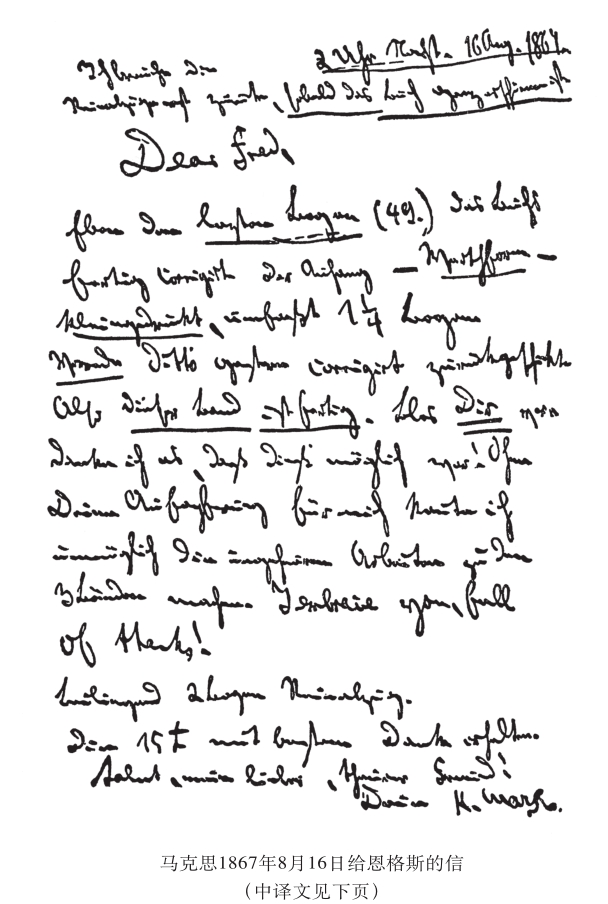 2 Uhr Nacht. 16 Aug. 1867.
Ich brauche die
Reinabzüge erst zurück, sobald das Buch ganz erschienen ist
Dear Fred,
Eben den letzten Bogen (49.) des Buchs
fertig corrigirt. Der Anhang – Werthform –
kleingedruckt, umfaßt 1 1/4 Bogen
Vorrede ditto gestern corrigirt zurückgeschickt
Also dieser Band ist fertig. Blos Dir ver
danke ich es, daß dieß möglich war! Ohne
Deine Aufopferung für mich konnte ich
unmöglich die ungeheuren Arbeiten zu den
3 Bänden machen. I embrace you, full
of thanks!
Beiliegend 2 Bogen Reinabzug.
Die 15 £ mit bestem Dank erhalten.
Salut, mein lieber, theurer Freund!
Dein K. Marx.
马克思1867年8月16日给恩格斯的信
（中译文见下页）